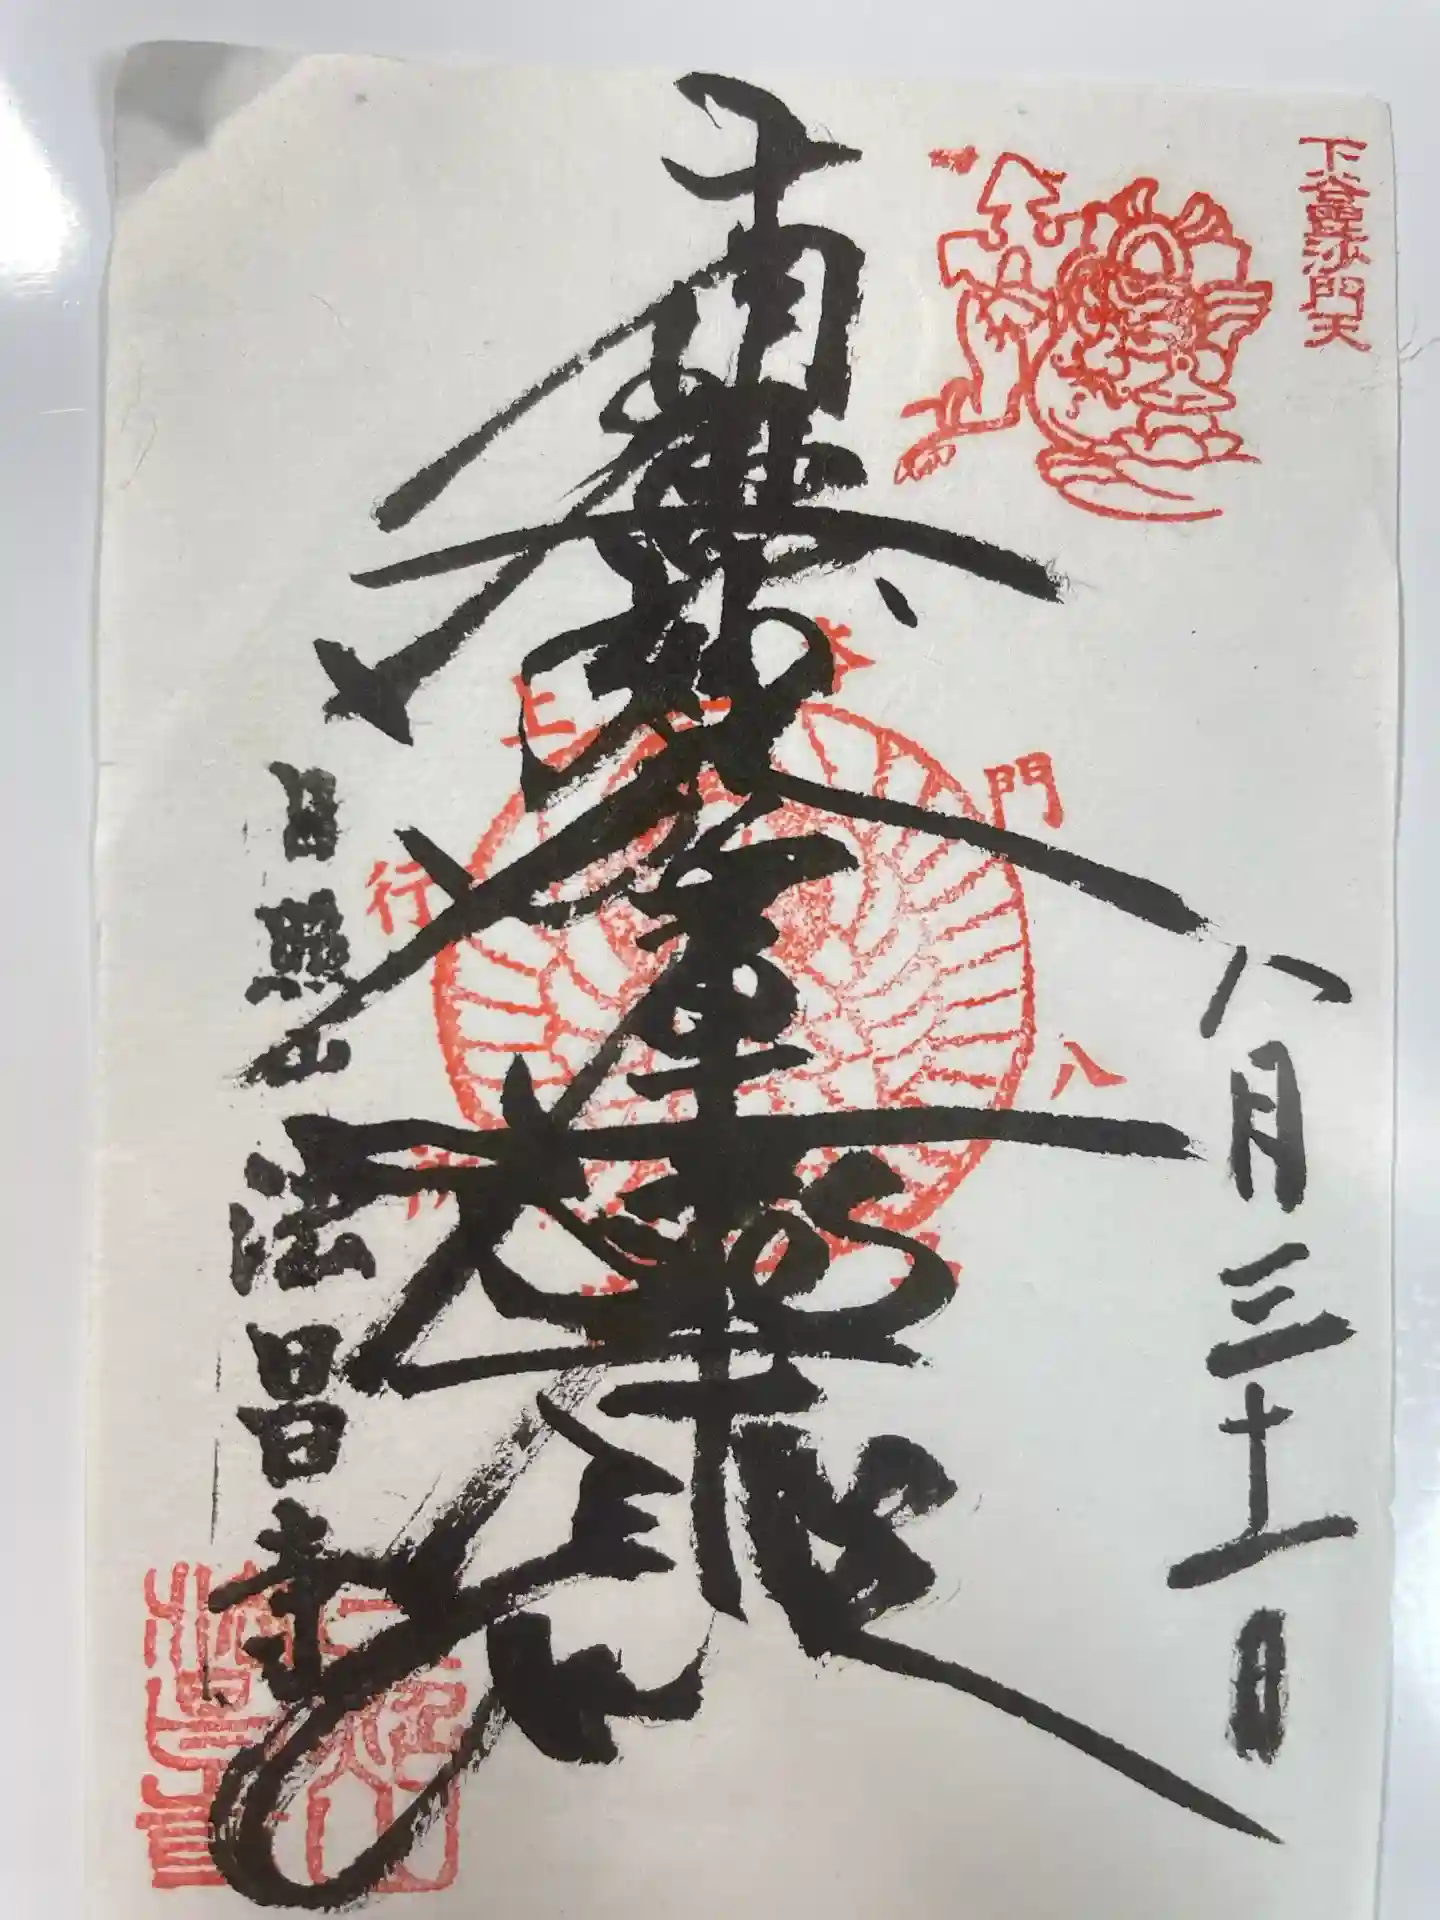 下谷毘沙門天
八月三十一日
南無妙法蓮華経
本門八
上行
日照山 法昌寺